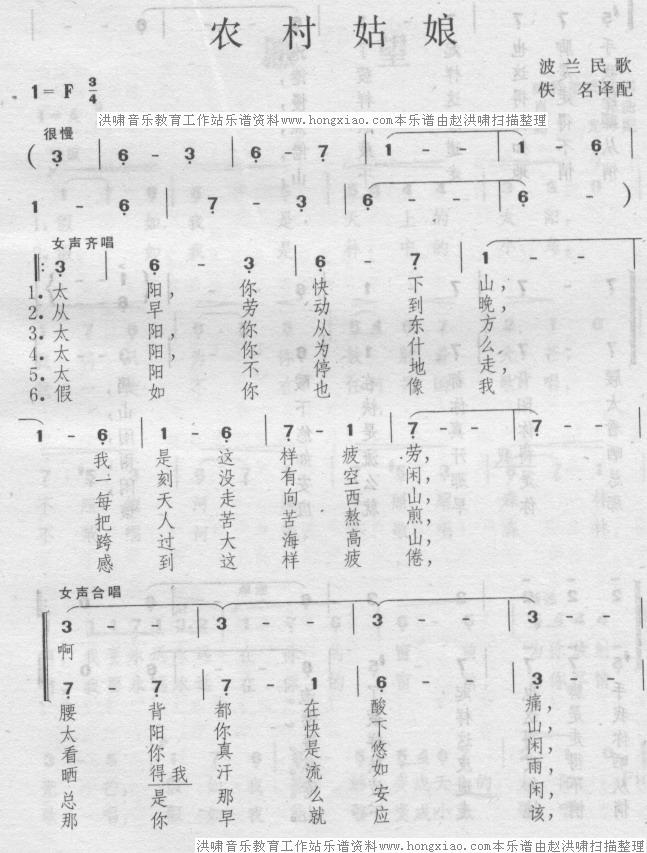 农村姑娘
波兰民歌
1=F 3/4
佚 名译配
洪啸音乐教育工作站乐谱资料www.hongxiao.com本乐谱由赵洪啸扫描整理
很慢
( 3 - 3 | 6 - 3 | 6 - 6 | 7 - - | 1 - - | 1 - 6 |
1 - 6 | 7 - 3 | 6 - - | 6 - ) |
女声齐唱
3 | 6 - 3 | 6 - - | 7 | 1 - - |
1.太 阳, 你 快 下 山,
2.从 早 劳 动 到 晚,
3.太 阳, 你 从 东 方
4.太 阳, 你 为 什 么
5.太 阳 不 停 地 走,
6.假 如 你 也 像 我
1 - 6 | 1 - 6 | 7 - 1 | 7 - - | 7 - - |
我 是 这 样 疲 劳,
一 刻 没 有 空 闲,
每 天 走 向 西 山,
把 人 苦 苦 熬 煎,
跨 过 大 海 高 山,
感 到 这 样 疲 倦,
女声合唱
3 - - | 3 - - | 3 - - | 3 - - |
啊
7 - 7 | 7 - 1 | 6 - - | 3 - - |
腰 背 都 在 酸 痛,
太 阳 你 快 下 山,
看 你 真 是 悠 闲,
晒得我 汗 流 如 雨,
总 是 那 么 安 闲,
那 你 早 就 应 该,
洪啸音乐教育工作站乐谱资料www.hongxiao.com本乐谱由赵洪啸扫描整理